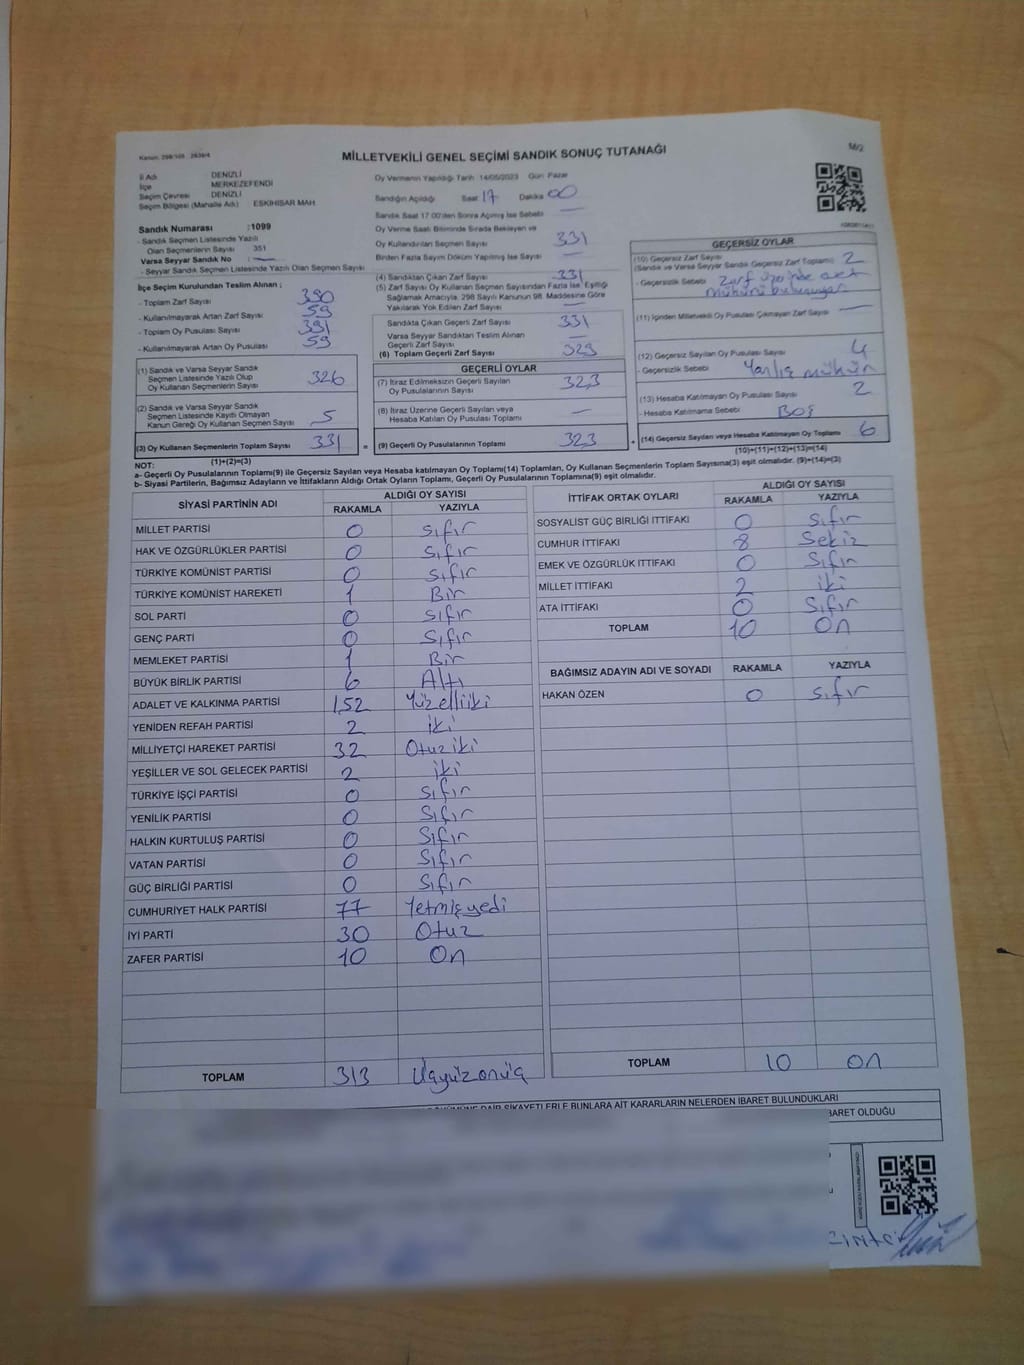 Kanun: 298/105 , 2839/4
MİLLETVEKİLİ GENEL SEÇİMİ SANDIK SONUÇ TUTANAĞI
M/2
İl Adı DENİZLİ
İlçe MERKEZEFENDİ
Seçim Çevresi DENİZLİ
Seçim Bölgesi (Mahalle Adı) ESKİHİSAR MAH.
Sandık Numarası :1099
- Sandık Seçmen Listesinde Yazılı
Olan Seçmenlerin Sayısı 351
Varsa Seyyar Sandık No : —
- Seyyar Sandık Seçmen Listesinde Yazılı Olan Seçmen Sayısı
İlçe Seçim Kurulundan Teslim Alınan ;
- Toplam Zarf Sayısı 390
- Kullanılmayarak Artan Zarf Sayısı 59
- Toplam Oy Pusulası Sayısı 391
- Kullanılmayarak Artan Oy Pusulası 59
(1) Sandık ve Varsa Seyyar Sandık
Seçmen Listesinde Yazılı Olup
Oy Kullanan Seçmenlerin Sayısı 326
(2) Sandık ve Varsa Seyyar Sandık
Seçmen Listesinde Kayıtlı Olmayan
Kanun Gereği Oy Kullanan Seçmen Sayısı 5
(3) Oy Kullanan Seçmenlerin Toplam Sayısı 331
(1)+(2)=(3)
Oy Vermenin Yapıldığı Tarih 14/05/2023 Gün Pazar
Sandığın Açıldığı Saat 17 Dakika 00
Sandık Saat 17:00'den Sonra Açılmış İse Sebebi —
Oy Verme Saati Bitiminde Sırada Bekleyen ve
Oy Kullandırılan Seçmen Sayısı 331
Birden Fazla Sayım Döküm Yapılmış İse Sayısı —
(4) Sandıktan Çıkan Zarf Sayısı 331
(5) Zarf Sayısı Oy Kullanan Seçmen Sayısından Fazla İse, Eşitliği
Sağlamak Amacıyla, 298 Sayılı Kanunun 98. Maddesine Göre
Yakılarak Yok Edilen Zarf Sayısı —
Sandıkta Çıkan Geçerli Zarf Sayısı 331
Varsa Seyyar Sandıktan Teslim Alınan
Geçerli Zarf Sayısı —
(6) Toplam Geçerli Zarf Sayısı 323
GEÇERLİ OYLAR
(7) İtiraz Edilmeksizin Geçerli Sayılan
Oy Pusulalarının Sayısı 323
(8) İtiraz Üzerine Geçerli Sayılan veya
Hesaba Katılan Oy Pusulası Toplamı —
= (9) Geçerli Oy Pusulalarının Toplamı 323
GEÇERSİZ OYLAR
(10) Geçersiz Zarf Sayısı 2
(Sandık ve Varsa Seyyar Sandık Geçersiz Zarf Toplamı)
- Geçersizlik Sebebi Zarf üzerinde
mühürü
(11) İçinden Milletvekili Oy Pusulası Çıkmayan Zarf Sayısı —
(12) Geçersiz Sayılan Oy Pusulası Sayısı 4
- Geçersizlik Sebebi Yanlış mühür
(13) Hesaba Katılmayan Oy Pusulası Sayısı 2
- Hesaba Katılmama Sebebi BOŞ
+ (14) Geçersiz Sayılan veya Hesaba Katılmayan Oy Toplamı 6
(10)+(11)+(12)+(13)=(14)
NOT:
a- Geçerli Oy Pusulalarının Toplamı(9) ile Geçersiz Sayılan veya Hesaba katılmayan Oy Toplamı(14) Toplamları, Oy Kullanan Seçmenlerin Toplam Sayısına(3) eşit olmalıdır. (9)+(14)=(3)
b- Siyasi Partilerin, Bağımsız Adayların ve İttifakların Aldığı Ortak Oyların Toplamı, Geçerli Oy Pusulalarının Toplamına(9) eşit olmalıdır.
SİYASİ PARTİNİN ADI ALDIĞI OY SAYISI
RAKAMLA YAZIYLA
MİLLET PARTİSİ 0 Sıfır
HAK VE ÖZGÜRLÜKLER PARTİSİ 0 Sıfır
TÜRKİYE KOMÜNİST PARTİSİ 0 Sıfır
TÜRKİYE KOMÜNİST HAREKETİ 1 Bir
SOL PARTİ 0 Sıfır
GENÇ PARTİ 0 Sıfır
MEMLEKET PARTİSİ 1 Bir
BÜYÜK BİRLİK PARTİSİ 6 Altı
ADALET VE KALKINMA PARTİSİ 152 Yüzelliiki
YENİDEN REFAH PARTİSİ 2 iki
MİLLİYETÇİ HAREKET PARTİSİ 32 Otuziki
YEŞİLLER VE SOL GELECEK PARTİSİ 2 iki
TÜRKİYE İŞÇİ PARTİSİ 0 Sıfır
YENİLİK PARTİSİ 0 Sıfır
HALKIN KURTULUŞ PARTİSİ 0 Sıfır
VATAN PARTİSİ 0 Sıfır
GÜÇ BİRLİĞİ PARTİSİ 0 Sıfır
CUMHURİYET HALK PARTİSİ 77 Yetmişyedi
İYİ PARTİ 30 Otuz
ZAFER PARTİSİ 10 On
TOPLAM 313 Üçyüzonüç
İTTİFAK ORTAK OYLARI ALDIĞI OY SAYISI
RAKAMLA YAZIYLA
SOSYALİST GÜÇ BİRLİĞİ İTTİFAKI 0 Sıfır
CUMHUR İTTİFAKI 8 Sekiz
EMEK VE ÖZGÜRLÜK İTTİFAKI 0 Sıfır
MİLLET İTTİFAKI 2 iki
ATA İTTİFAKI 0 Sıfır
TOPLAM 10 On
BAĞIMSIZ ADAYIN ADI VE SOYADI RAKAMLA YAZIYLA
HAKAN ÖZEN 0 Sıfır
TOPLAM 10 on
ŞİKAYETLERLE BUNLARA AİT KARARLARIN NELERDEN İBARET BULUNDUKLARI
İBARET OLDUĞU